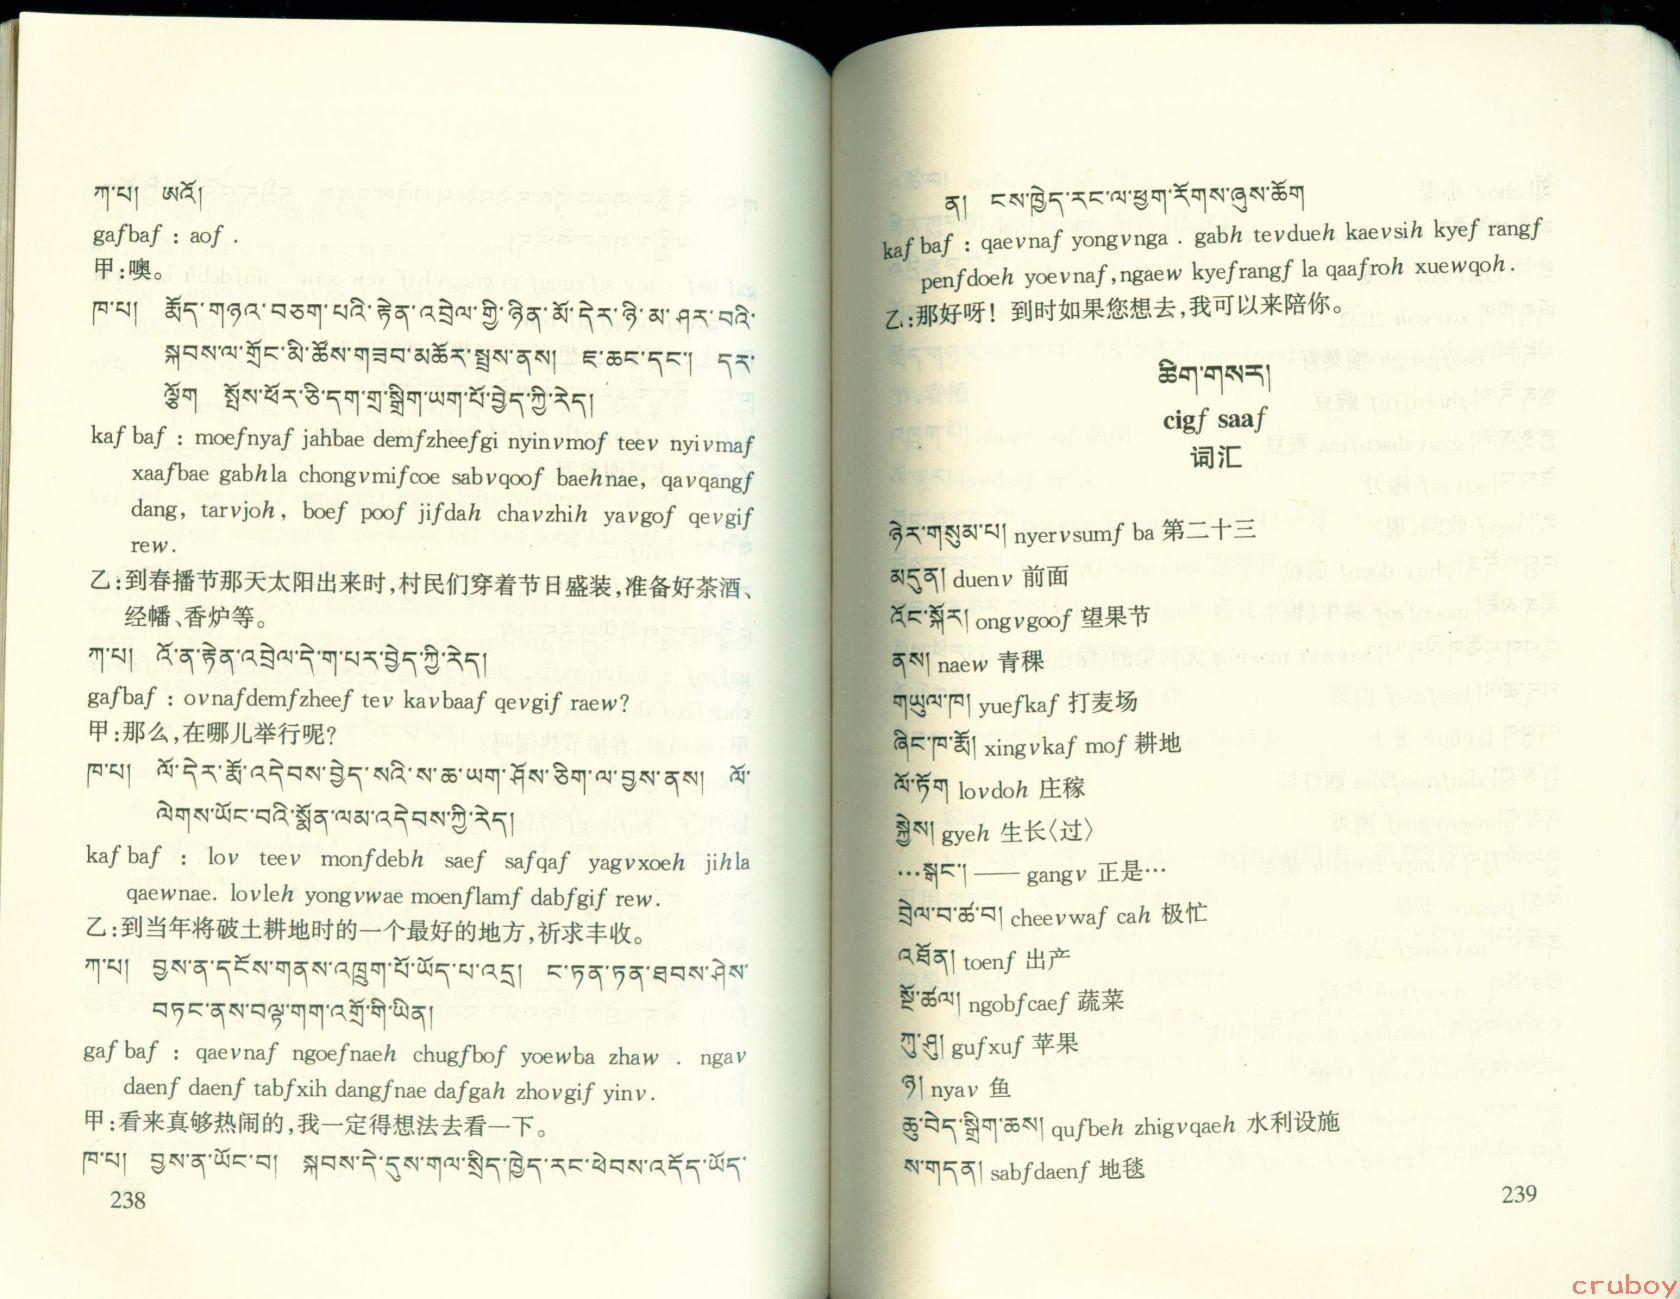 ཀ་པ།  ཨའོ།
gafbaf : aof .
甲:噢。
ཁ་པ།  རྨོད་གཉའ་བཅག་པའི་རྟེན་འབྲེལ་གྱི་ཉིན་མོ་དེར་ཉི་མ་ཤར་བའི་
སྐབས་ལ་གྲོང་མི་ཚོས་གཟབ་མཆོར་སྤྲས་ནས།  ཇ་ཆང་དང་།  དར་
ལྕོག  སྤོས་ཕོར་ཅི་དག་གྲ་སྒྲིག་ཡག་པོ་བྱེད་ཀྱི་རེད།
kafbaf : moefnyaf jahbae demfzheefgi nyinvmof teev nyivmaf
xaafbae gabhla chongvmifcoe sabvqoof baehnae, qavqangf
dang, tarvjoh, boef poof jifdah chavzhih yavgof qevgif
rew.
乙:到春播节那天太阳出来时,村民们穿着节日盛装,准备好茶酒、
经幡、香炉等。
ཀ་པ།  འོ་ན་རྟེན་འབྲེལ་དེ་ག་པར་བྱེད་ཀྱི་རེད།
gafbaf : ovnafdemfzheef tev kavbaaf qevgif raew?
甲:那么,在哪儿举行呢?
ཁ་པ།  ལོ་དེར་རྨོ་འདེབས་བྱེད་སའི་ས་ཆ་ཡག་ཤོས་ཅིག་ལ་བྱས་ནས།  ལོ་
ལེགས་ཡོང་བའི་སྨོན་ལམ་འདེབས་ཀྱི་རེད།
kafbaf : lov teev monfdebh saef safqaf yagvxoeh jihla
qaewnae. lovleh yongvwae moenflamf dabfgif rew.
乙:到当年将破土耕地时的一个最好的地方,祈求丰收。
ཀ་པ།  བྱས་ན་དངོས་གནས་འཁྲུག་པོ་ཡོད་པ་འདྲ།  ང་ཏན་ཏན་ཐབས་ཤེས་
བཏང་ནས་བལྟ་གག་འགྲོ་གི་ཡིན།
gafbaf : qaevnaf ngoefnaeh chugfbof yoewba zhaw . ngav
daenf daenf tabfxih dangfnae dafgah zhovgif yinv.
甲:看来真够热闹的,我一定得想法去看一下。
ཁ་པ།  བྱས་ན་ཡོང་བ།  སྐབས་དེ་དུས་གལ་སྲིད་ཁྱེད་རང་ཕེབས་འདོད་ཡོད་
238
ན།  ངས་ཁྱེད་རང་ལ་ཕྱག་རོགས་ཞུས་ཆོག
kafbaf : qaevnaf yongvnga . gabh tevdueh kaevsih kyef rangf
penfdoeh yoevnaf,ngaew kyefrangf la qaafroh xuewqoh.
乙:那好呀! 到时如果您想去,我可以来陪你。
ཚིག་གསར།
cigf saaf
词汇
ཉེར་གསུམ་པ། nyervsumf ba 第二十三
མདུན། duenv 前面
འོང་སྐོར། ongvgoof 望果节
ནས། naew 青稞
གཡུལ་ཁ། yuefkaf 打麦场
ཞིང་ཁ་རྨོ། xingvkaf mof 耕地
ལོ་ཏོག lovdoh 庄稼
སྐྱེས། gyeh 生长〈过〉
…སྒང་། —— gangv 正是…
བྲེལ་བ་ཚ་བ། cheevwaf cah 极忙
འཐོན། toenf 出产
སྔོ་ཚལ། ngobfcaef 蔬菜
ཀུ་ཤུ། gufxuf 苹果
ཉ། nyav 鱼
ཆུ་བེད་སྒྲིག་ཆས། qufbeh zhigvqaeh 水利设施
ས་གདན། sabfdaenf 地毯
239
cruboy